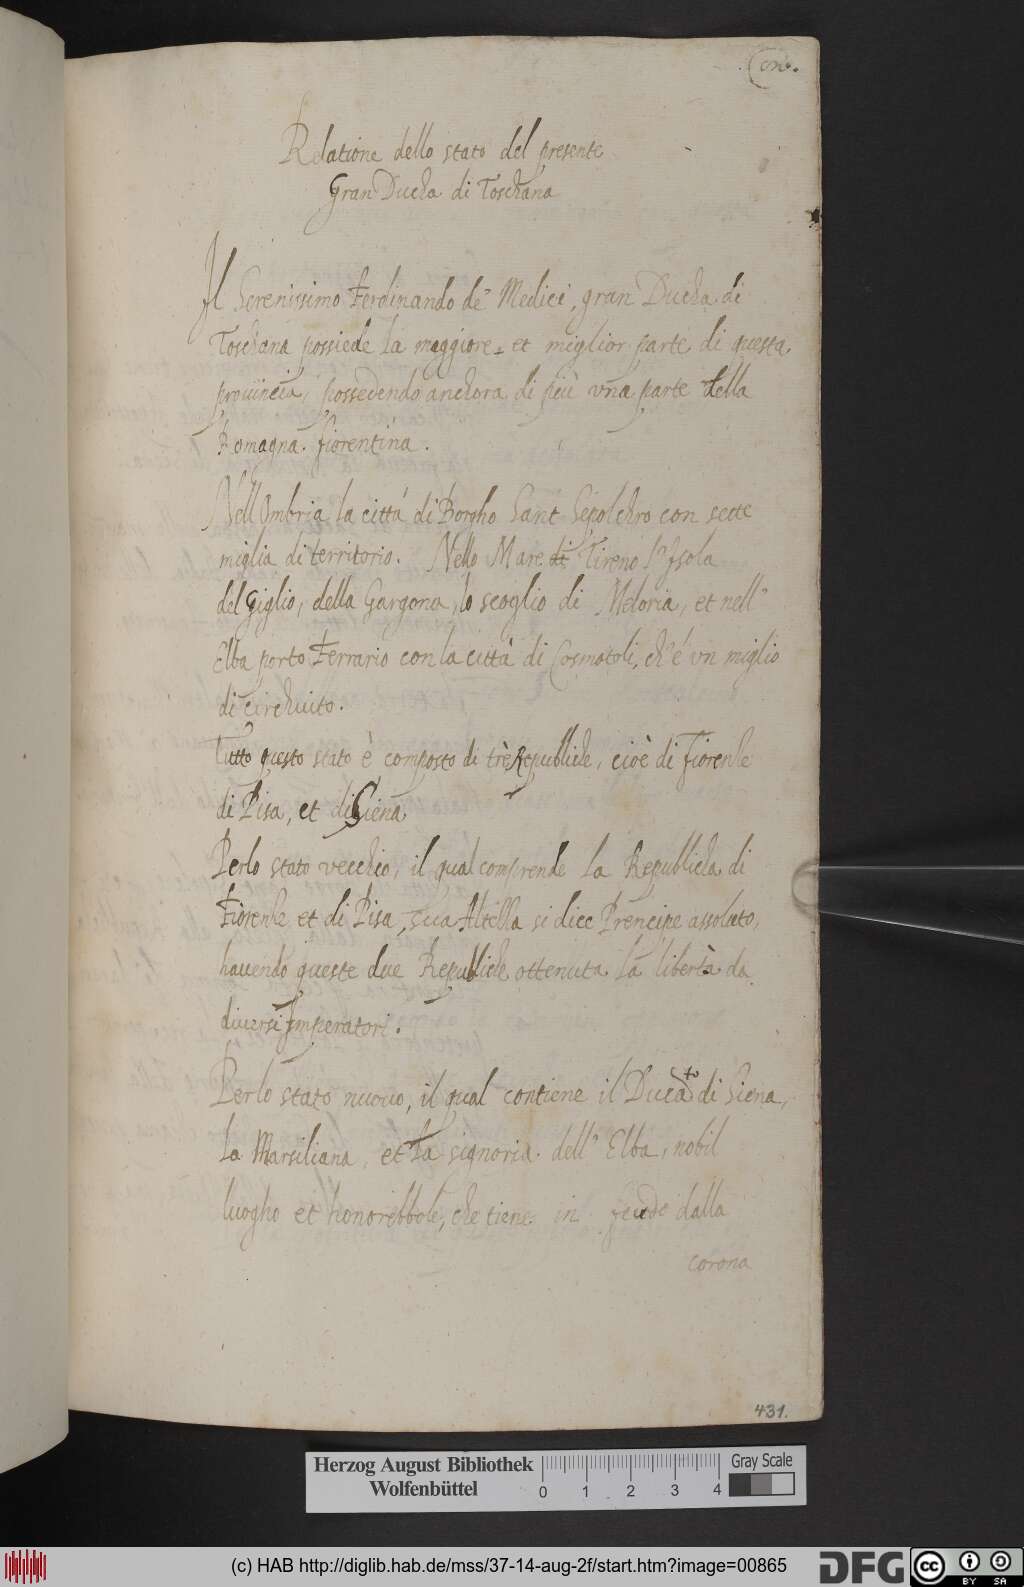 Relatione dello stato del presente
Gran Ducha di Toschana
Il Serenissimo Ferdinando de' Medici, gran Ducha di
Toschana possiede la maggiore et miglior parte di questa
provincia, possedendo anchora di più vna parte della
Romagna fiorentina.
Nell Ombria la città di Borgho Sant Sepolchro con sette
miglia di territorio. Nello Mare di Tireno l'Isola
del Giglio, della Gargona, lo scoglio di Meloria, et nell'
Elba porto Ferrario con la città di Cosmopoli, ch'é vn miglio
di circhuito.
Tutto questo stato è composto di trè Republiche, cioè di fiorenze
di Pisa, et di Siena
Perlo stato vecchio, il qual comprende la Republicha di
Fiorenze et di Pisa, sua Altezza si dice Prencipe assoluto,
hauendo queste due Republiche ottenuta la libertà da
diuersi Imperatori.
Perlo stato nuouo, il qual contiene il Ducato di Siena,
la Marsiliana, et la signoria dell' Elba, nobil
luogho et honorebbole, che tiene in feudo dalla
corona
431.
Herzog August Bibliothek
Wolfenbüttel
0 1 2 3 4
Gray Scale
(c) HAB http://diglib.hab.de/mss/37-14-aug-2f/start.htm?image=00865
DFG
cc BY SA